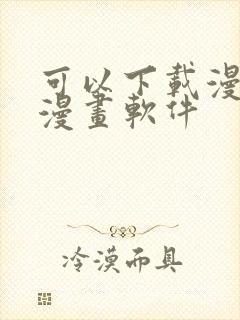 可以下載漫
漫畫軟件
冷漠面具